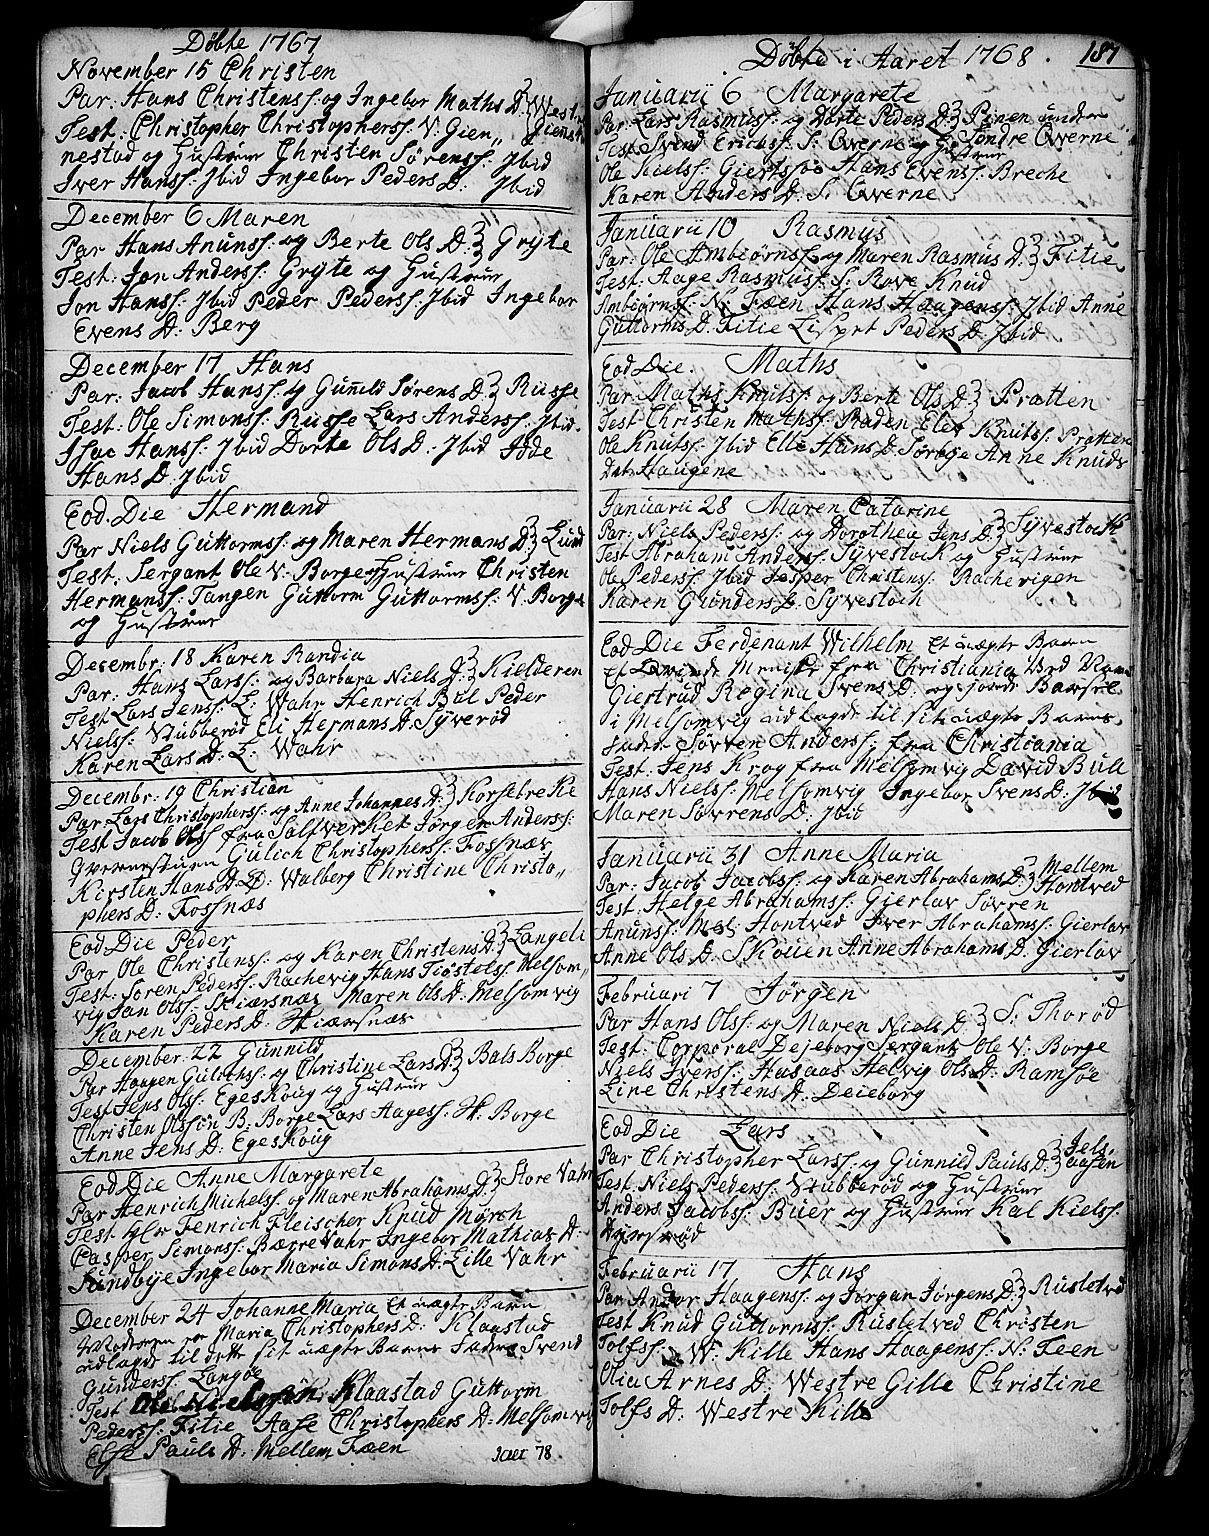 Döbte 1767
November 15 Christen
Par: Hans Christenss: og Ingebor Maths D: } Westre
Test: Christopher Christopherss: V. Gien„ Giennst
nestad og Hustrue Christen Sörenss: Jbid
Iver Hanss: Jbid Ingebor Peders D: Jbid
December 6 Maren
Par Hans Anunss: og Berte Ols D: } Gryte
Test: Jon Anderss: Gryte og Hustrue
Jon Hanss: Jbid Peder Pederss: Jbid Ingebor
Evens D: Berg
December 17 Hans
Par: Jacob Hanss: og Gunild Sörens D: } Russe
Test: Ole Simonss: Russe Lars Anderss: Jbid.
Isac Hanss: Jbid Dorte Ols D: Jbid Jode
Hans D: Jbid
Eod. Die Hermand
Par Niels Guttormss: og Maren Hermans D: } Lund
Test: Sergant Ole V. Borge og Hustrue Christen
Hermanss: Tangen Guttorm Guttormss: V. Borge
og Hustrue
Decembr: 18 Karen Randia
Par: Hans Larss: og Barbara Niels D: } Kielderen
Test Lars Jenss: L: Wahr Henrich Bul Peder
Nielss: Stubberöd Eli Hermans D: Syveröd
Karen Lars D: L: Wahr
Decembr: 19 Christian
Par Lars Christopherss: og Anne Johannes D: } Korsebreke
Test Jacob Olss fra Saltverket Jörgen Anderss:
Gverenstuen Gulich Christopherss: Fossnæs
Kirsten Hans D: Walberg Christine Christo„
phers D: Fossnæs
Eod Die Peder
Par Ole Christenss: og Karen Christens D: } Langeli
Test: Soren Pederss: Rachevig Hans Tiöstelss: Melsom„
vig Jan Olss: Skiærsnæs Maren Ols D: Melsomvig
Karen Peders D: Skiærsnæs
December 22 Gunnild
Par Haagen Gulichss: og Christine Lars D: } Bals Borge
Test Jens Olss: Egeskoug og Hustrue
Christen Olssön B: Borge Lars Aagess: Sk: Borge
Anne Jens D: Egeskoug
Eod Die Anne Margarete
Par Henrich Michelss: og Maren Abrahams D: } Store Vahr
Test Hr Fenrich Fleischer Knud Mörch
Casper Simonss: Bærre Vahr Ingebor Mathias D:
Sundbye Ingebor Maria Simons D: Lille Vahr
December 24 Johanne Maria Et uægte Barn
Moderen er Maria Christophers D: Klaastad
udlagde til dett sit uægte Barns Fader Svend
Gunderss: Langöe
Test Ole Nielssön Klaastad Guttorm
Pederss: Fitie Aase Christophers D: Melsomvig
Else Pauls D: Mellem Fæen
78
Döbte i Aaret 1768. 187
Januarii 6 Margarete
Par: Lars Rasmuss: og Dorte Peders D: } Pinen under
Test Svend Erichss: S: Qverne og Hustrue Söndre Qverne
Ole Kielss: Giertssöe Hans Evenss: Breche
Karen Anders D: S: Qverne
Januarii 10 Rasmus
Par: Ole Ambiörnss: og Maren Rasmus D: } Fitie
Test: Aage Rasmuss: S: Rove Knud
Ambiörnss: N: Fæen Hans Haagenss: Jbid Anne
Guttorms D: Fitie Lisprt Peders D: Jbid
Eod Die. Maths
Par Maths Knutss: og Berte Ols D: } Pratten
Test Christen Mathss: Raden Elev Knutss: Pratten
Ole Knutss: Jbid Elle Hans D: Sörbye Anne Knuds
Dat: Haugene
Januarii 28 Maren Catarine
Par: Niels Pederss: og Dorothea Jens D: } Syvestock
Test Abraham Anderss: Syvestock og Hustrue
Ole Pederss: Jbid Jesper Christenss: Rachevigen
Karen Gunders D: Syvestoch
Eod Die Ferdenant Wilhelm Et uægte Barn
Et Qvinde Menniske fra Christiania Ved Navn
Giertrud Regina Svens D: og giorde Barsel
i Melsomvig udlagde til sit uægte Barns
Fader Sörren Anderss: fra Christiania
Test: Jens Krog fra Melsomvig David Bull
Hans Nielss: Melsomvig Ingebor Svens D: Jbid
Maren Sörrens D: Jbid
Januarii 31 Anne Maria
Par: Jacob Jacobss: og Karen Abrahams D: } Mellem Hontved
Test: Helge Abrahamss: Gierlav Sörren
Anunss: Mel Hontved Iver Abrahamss: Gierlav
Anne Ols D: Skouen Anne Abrahams D: Gierlav
Februari 7 Jörgen
Par Hans Olss: og Maren Niels D: } S: Thoröd
Test: Corporal Dejeborg Sergant Ole V: Borge
Niels Iverss: Husaas Helvig Ols D: Ramsöe
Line Christens D: Deieborg
Eod Die Lars
Par Christopher Larss: og Gunnild Pauls D: } Jels„ aasen
Test: Niels Pederss: Stubberöd og Hustrue
Anders Jacobss: Buer og Hustrue Kal Kielss:
Februarii 17 Hans
Par Andor Haagenss: og Jörgan Jörgens D: } Rustetved
Test Knud Guttormss: Rustetved Christen
Tolfss: W: Kille Hans Haagenss: N: Feen
Olia Arnes D: Westre Gille Christine
Tolfs D: Westre Kille